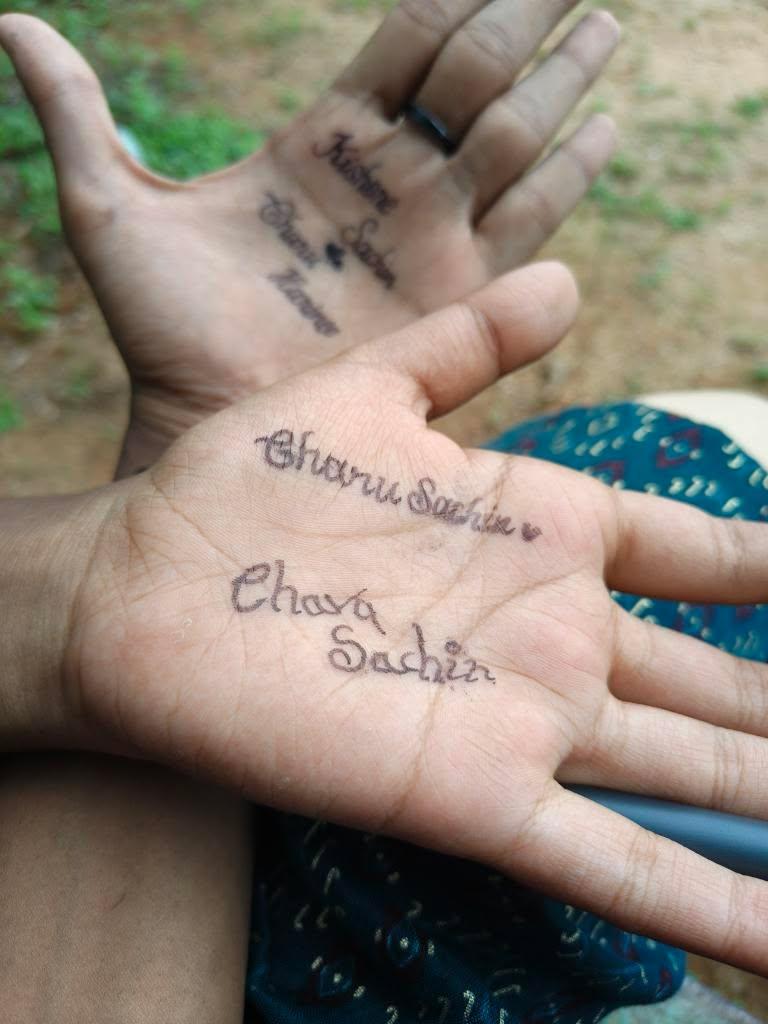 Kishore
Charu Sachin
Charu Sachin
Chava
Sachin